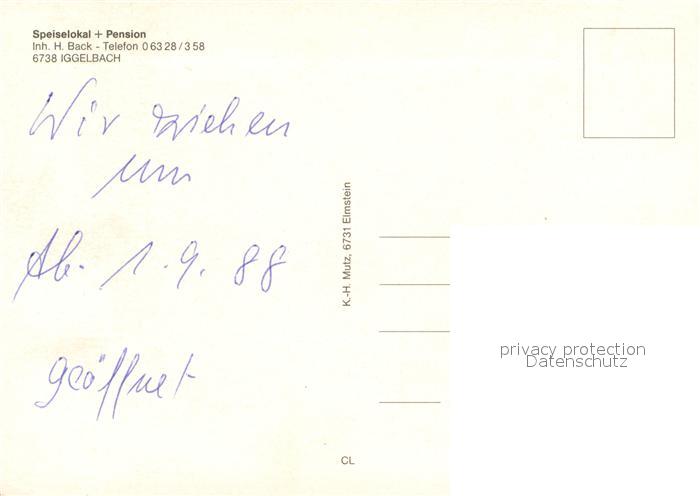 Speiselokal + Pension
Inh. H. Back - Telefon 0 63 28 / 3 58
6738 IGGELBACH
Wir ziehen
um
Ab. 1. 9. 88
geöffnet
K.-H. Mutz, 6731 Elmstein
CL
privacy protection
Datenschutz